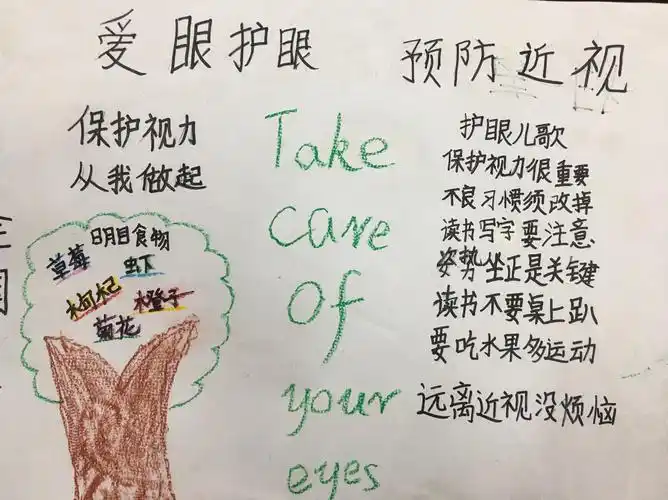 爱眼护眼 预防近视
保护视力
从我做起
明目食物
草莓 虾
枸杞 橙子
菊花
Take
care
of
your
eyes
护眼儿歌
保护视力很重要
不良习惯须改掉
读书写字要注意
姿势坐正是关键
读书不要桌上趴
要吃水果多运动
远离近视没烦恼